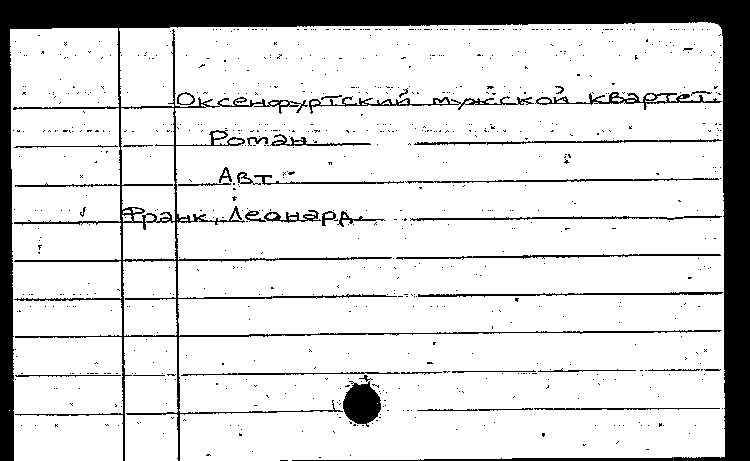 Оксенфуртский мужской квартет.
Роман.
Авт.:
Франк, Леонард.